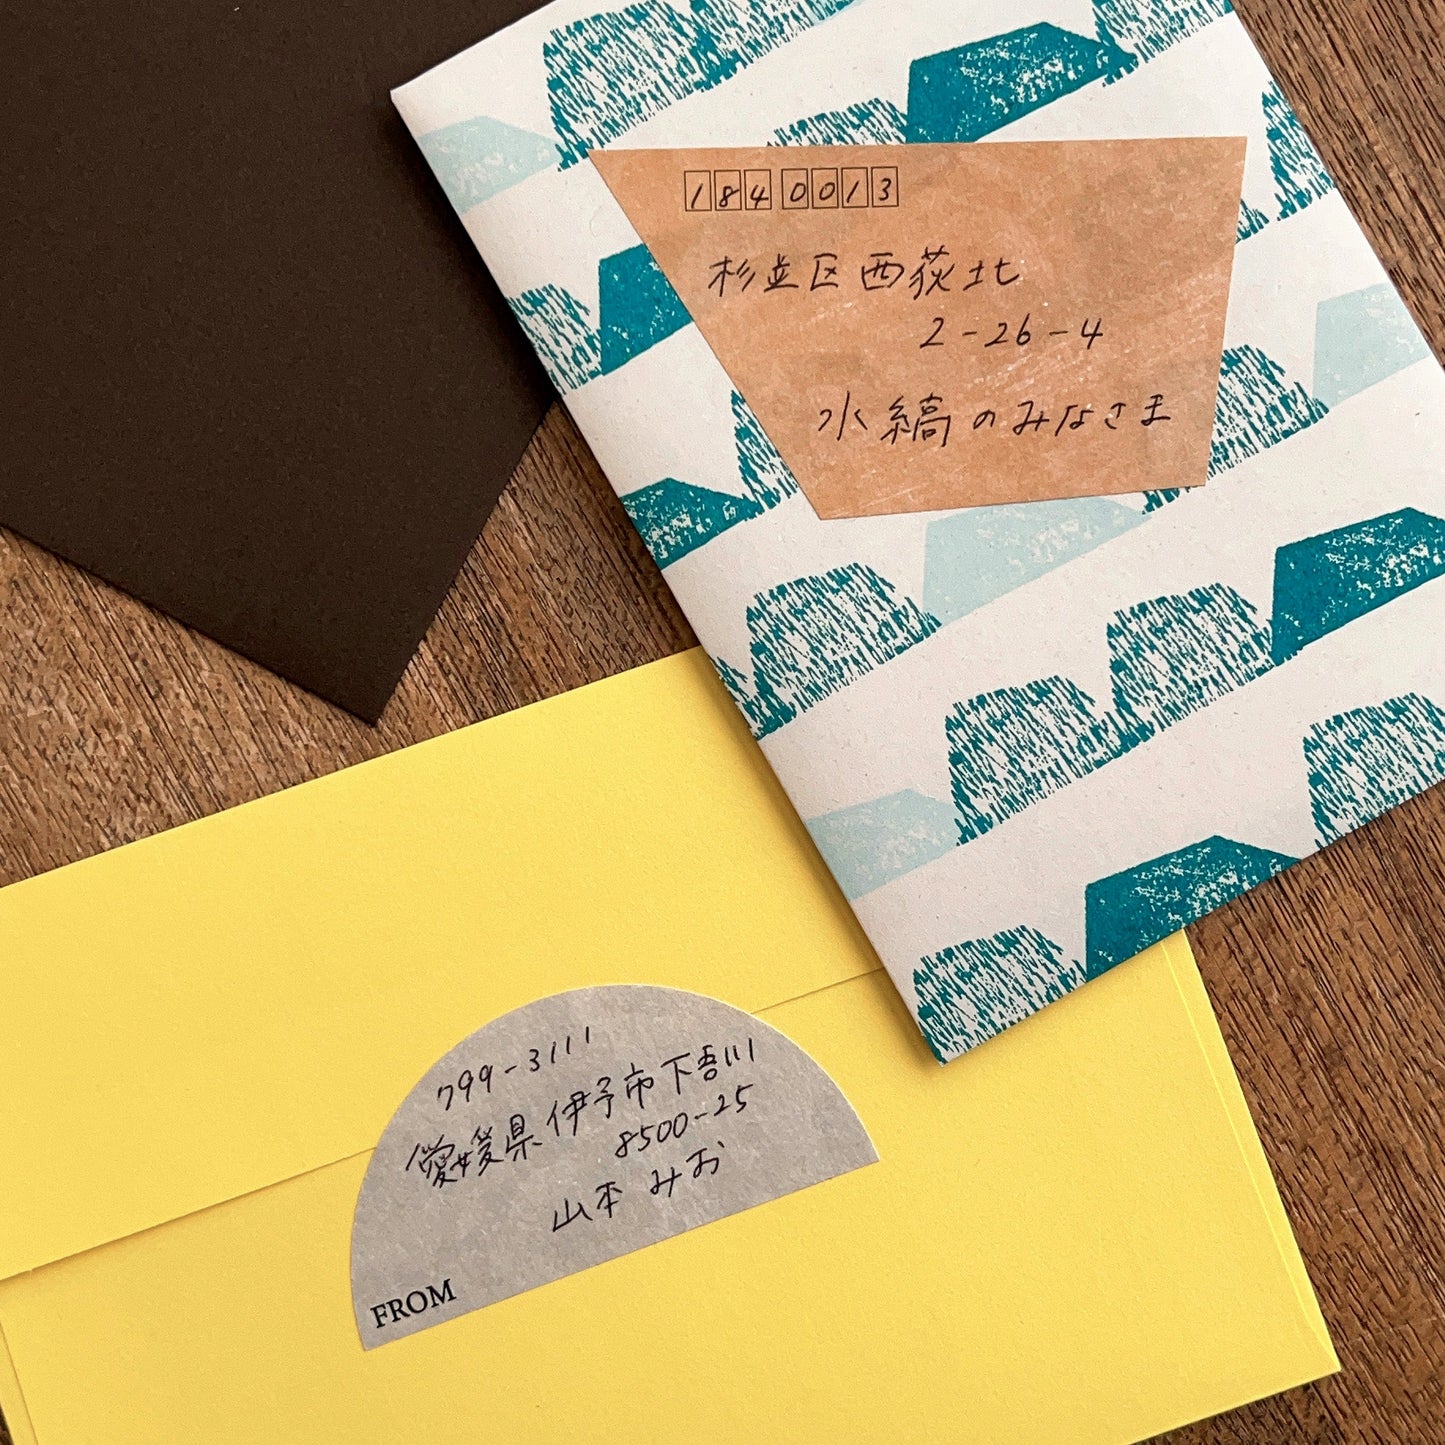 1840013
杉並区西荻北
2-26-4
水縞のみなさま
799-3111
愛媛県伊予市下吾川
8500-25
山本 みお
FROM